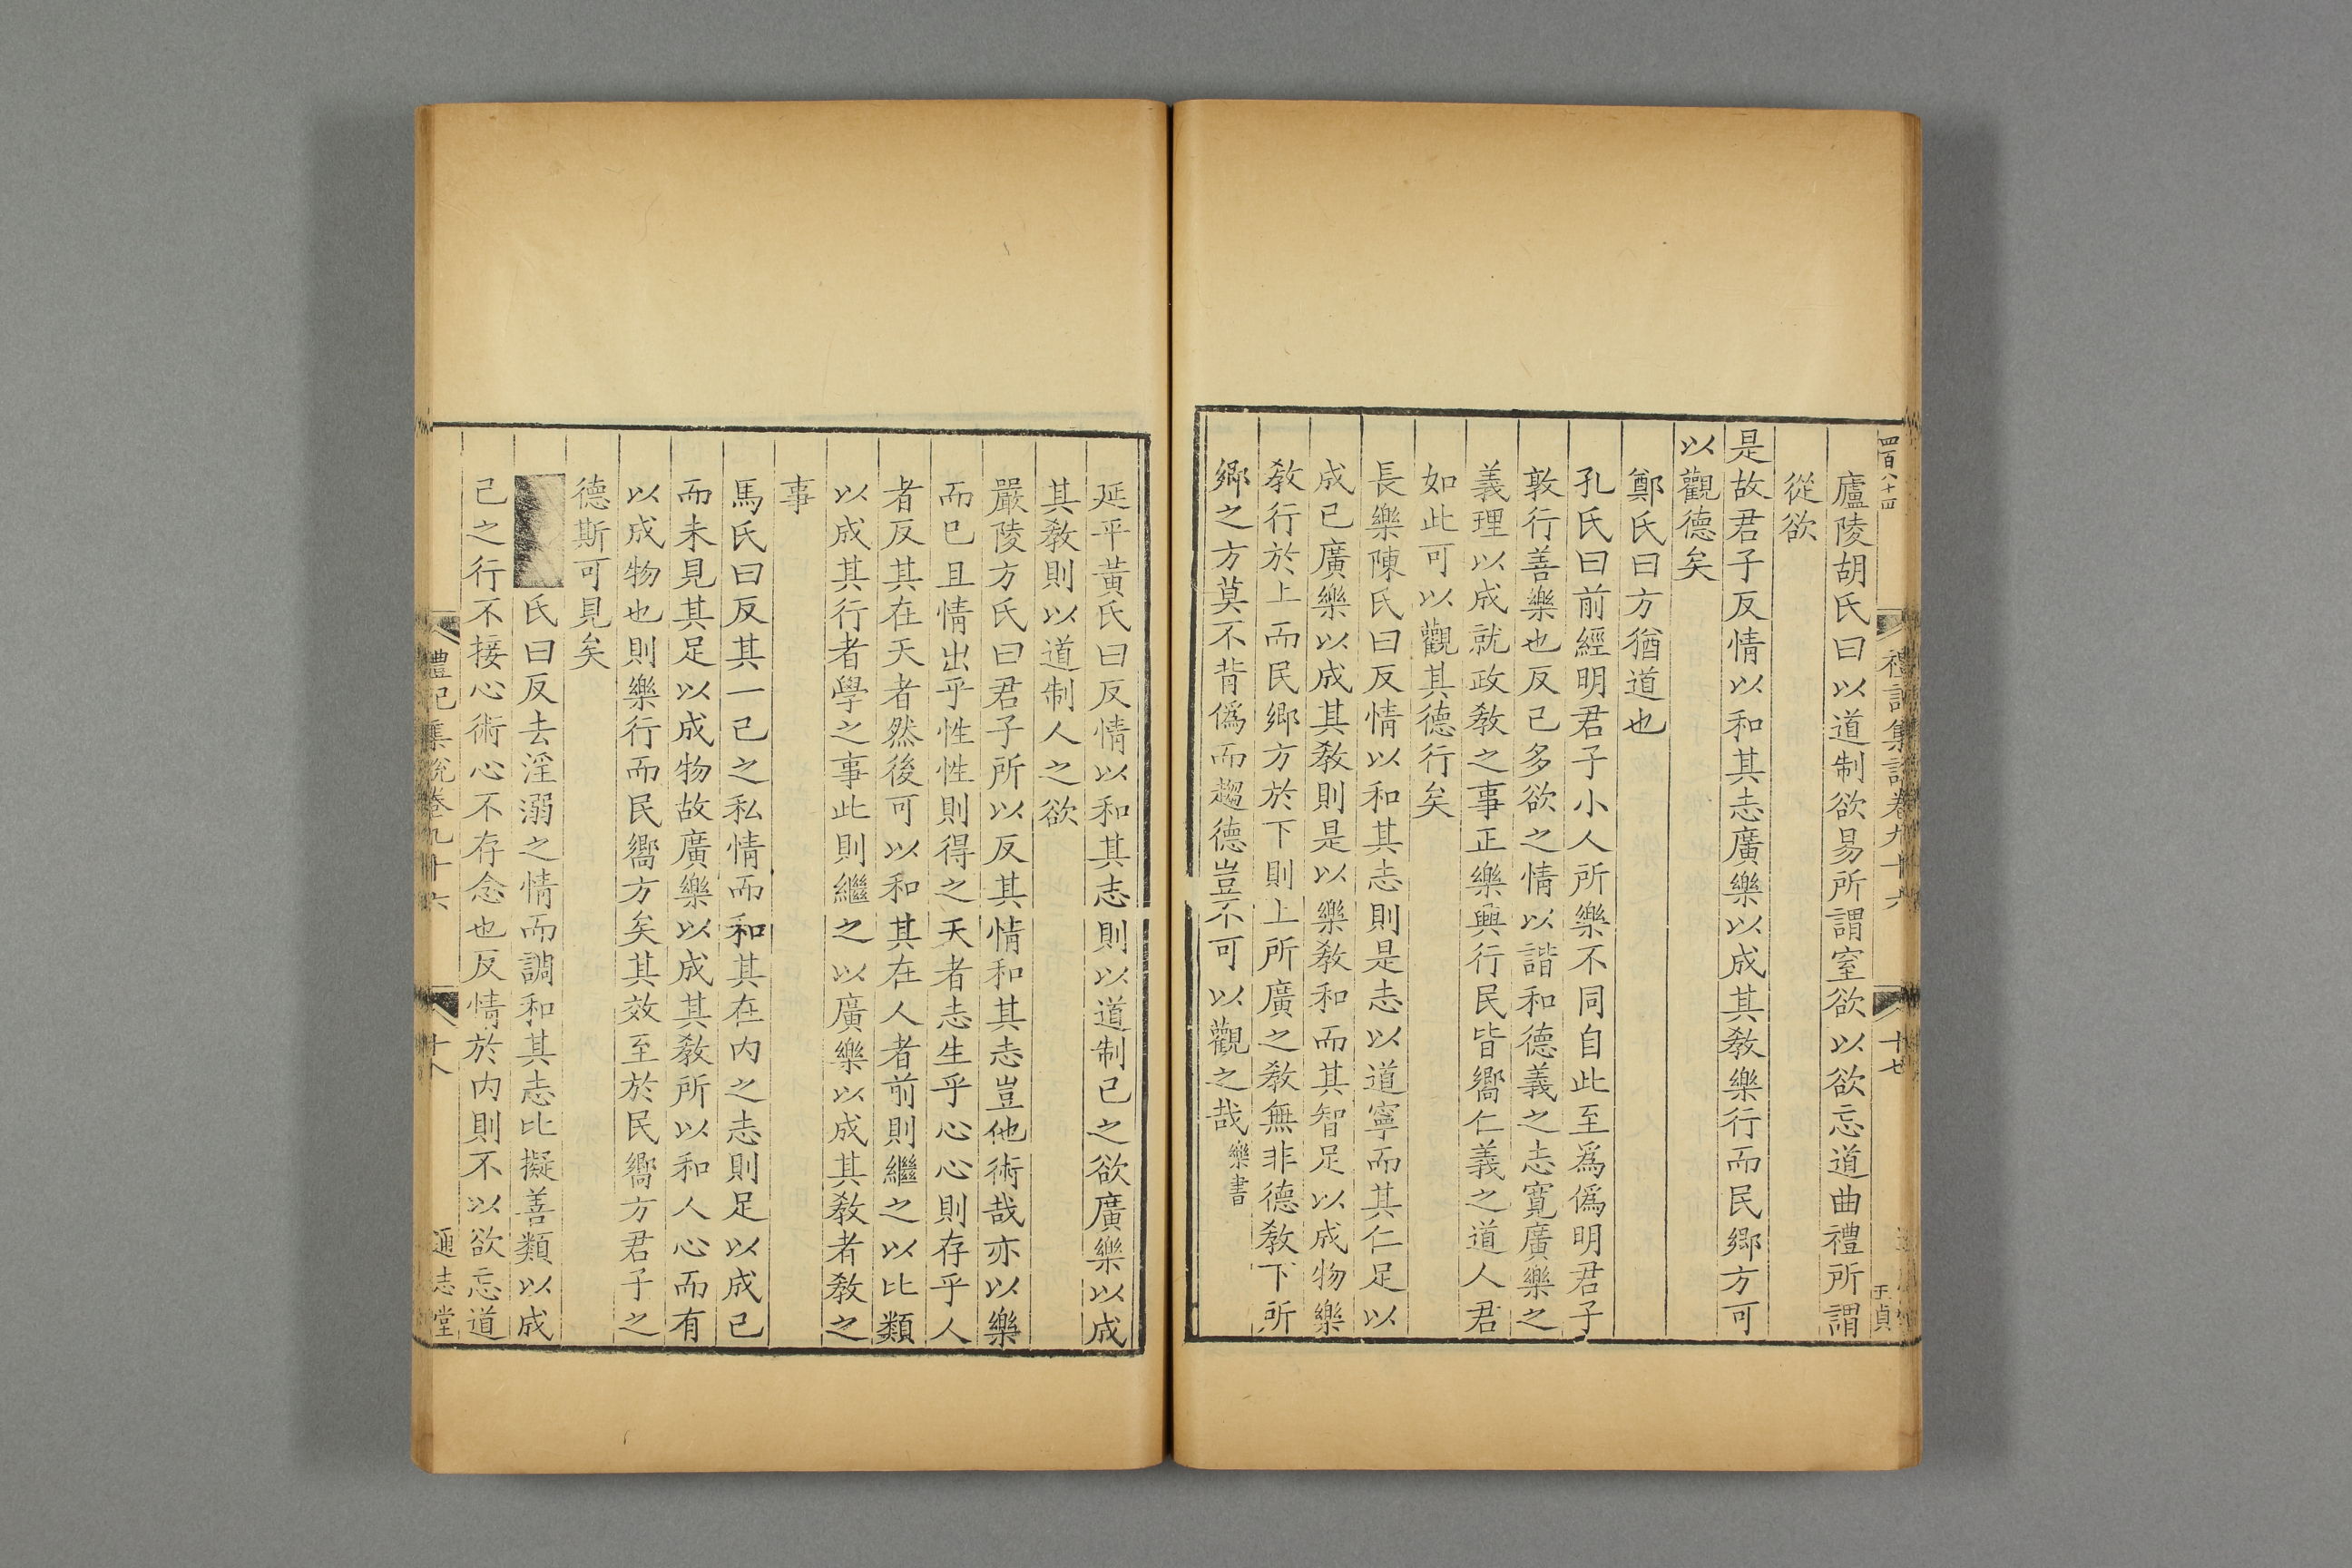 四百八十四
禮記集說卷九十六
十七
王貞
廬陵胡氏曰以道制欲易所謂窒欲以欲忘道曲禮所謂
從欲
是故君子反情以和其志廣樂以成其教樂行而民鄉方可
以觀德矣
鄭氏曰方猶道也
孔氏曰前經明君子小人所樂不同自此至為偽明君子
敦行善樂也反己多欲之情以諧和德義之志寬廣樂之
義理以成就政教之事正樂興行民皆嚮仁義之道人君
如此可以觀其德行矣
長樂陳氏曰反情以和其志則是志以道寧而其仁足以
成已廣樂以成其教則是以樂教和而其智足以成物樂
教行於上而民鄉方於下則上所廣之教無非德教下所
鄉之方莫不背偽而趨德豈不可以觀之哉樂書
延平黃氏曰反情以和其志則以道制已之欲廣樂以成
其教則以道制人之欲
嚴陵方氏曰君子所以反其情和其志豈他術哉亦以樂
而巳且情出乎性性則得之天者志生乎心心則存乎人
者反其在天者然後可以和其在人者前則繼之以比類
以成其行者學之事此則繼之以廣樂以成其教者教之
事
馬氏曰反其一己之私情而和其在內之志則足以成已
而未見其足以成物故廣樂以成其教所以和人心而有
以成物也則樂行而民嚮方矣其效至於民嚮方君子之
德斯可見矣
氏曰反去淫溺之情而調和其志比擬善類以成
己之行不接心術心不存念也反情於内則不以欲忘道
禮記集說卷九十六
十八
通志堂